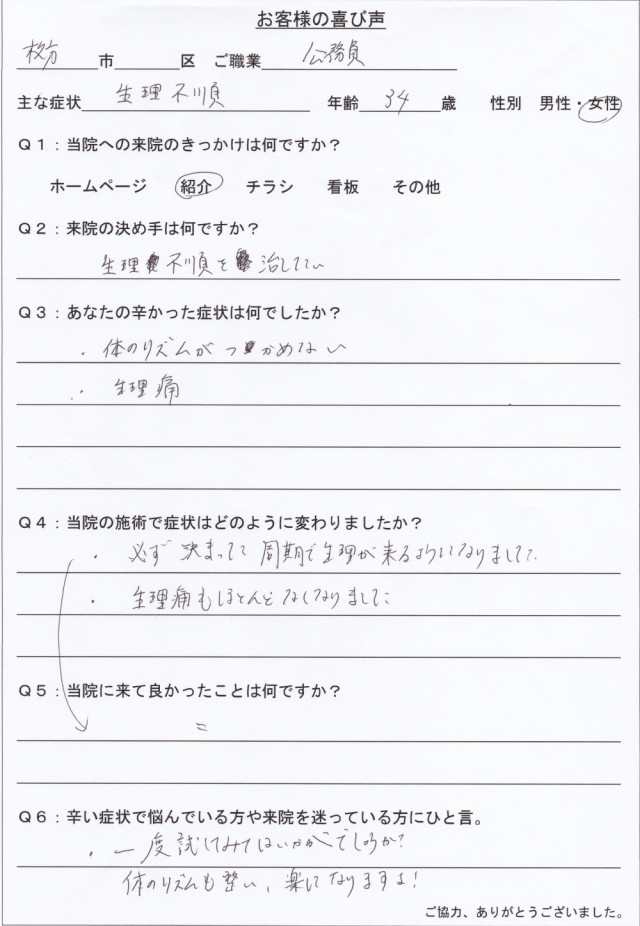 お客様の喜び声
枚方市 区 ご職業 公務員
主な症状 生理不順 年齢 34 歳 性別 男性・女性
Q1:当院への来院のきっかけは何ですか?
ホームページ 紹介 チラシ 看板 その他
Q2:来院の決め手は何ですか?
生理不順を治したい
Q3:あなたの辛かった症状は何でしたか?
・体のリズムがつかめない
・生理痛
Q4:当院の施術で症状はどのように変わりましたか?
・必ず決まった周期で生理が来るようになりました。
・生理痛もほとんどなくなりました
Q5:当院に来て良かったことは何ですか?
〃
Q6:辛い症状で悩んでいる方や来院を迷っている方にひと言。
・一度試してみてはいかがでしょうか?
体のリズムも整い、楽になりますよ!
ご協力、ありがとうございました。